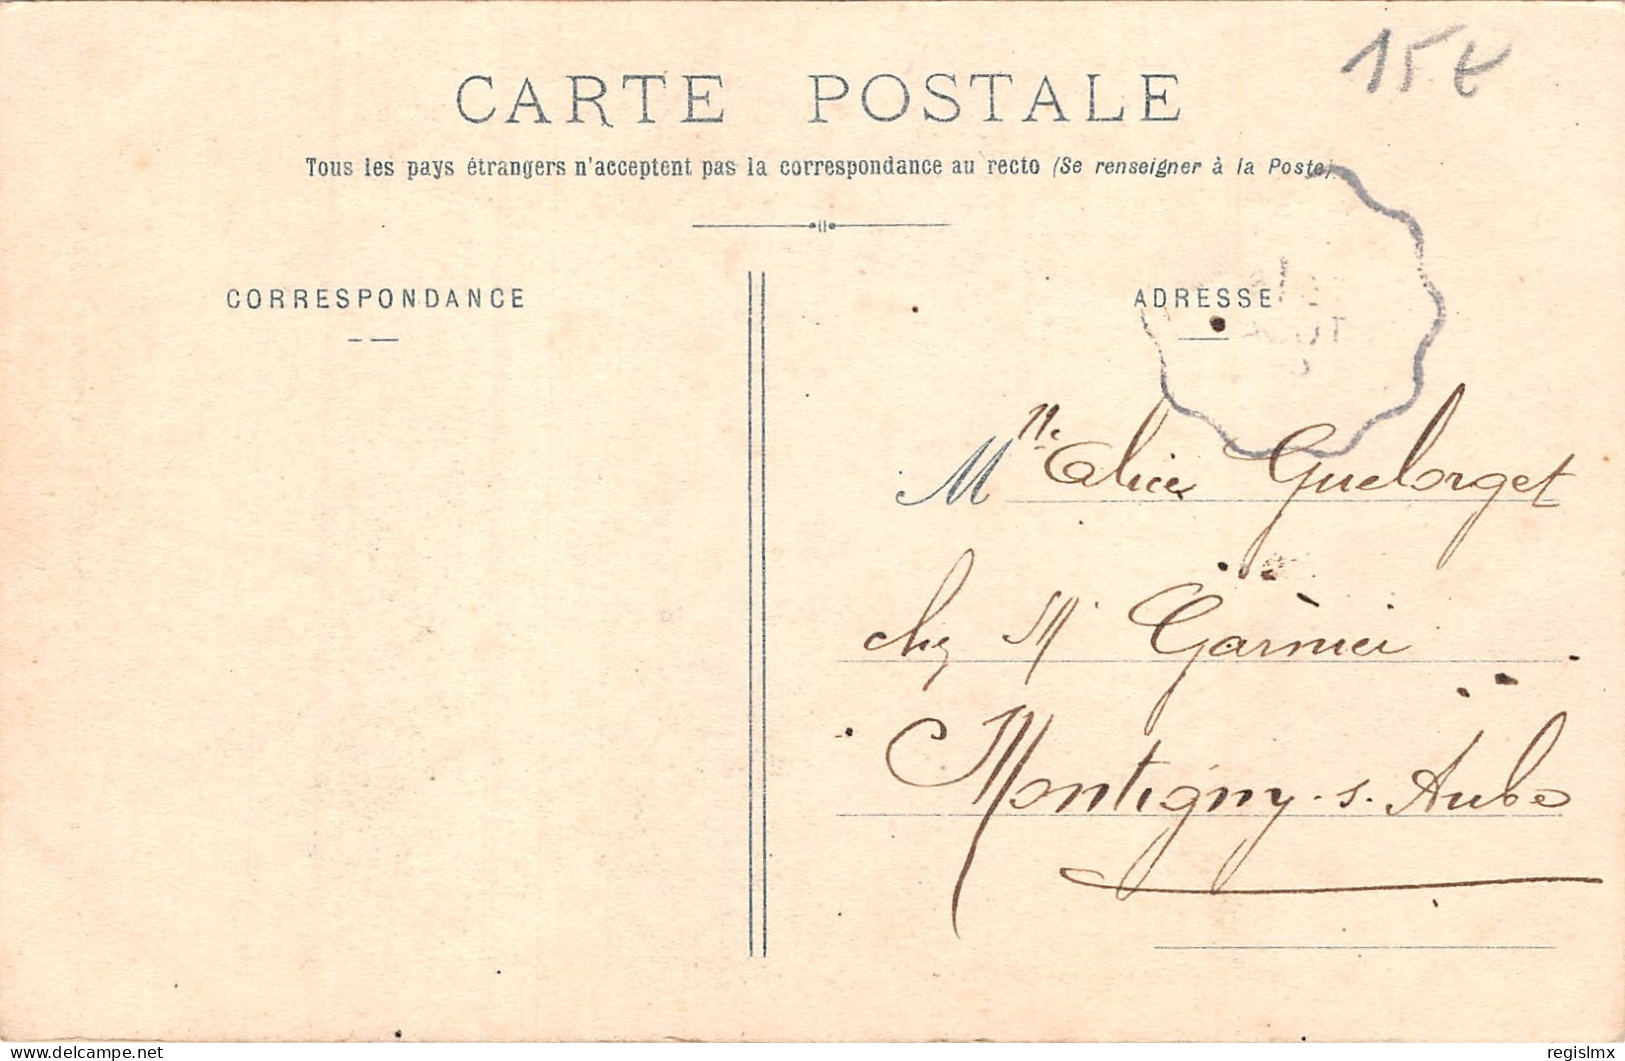 15 €
CARTE POSTALE
Tous les pays étrangers n'acceptent pas la correspondance au recto (Se renseigner à la Poste).
CORRESPONDANCE
ADRESSE
Mlle Alice Guelorget
chez Mr Garnier
Montigny-s-Aube
delcampe.net
regislmx